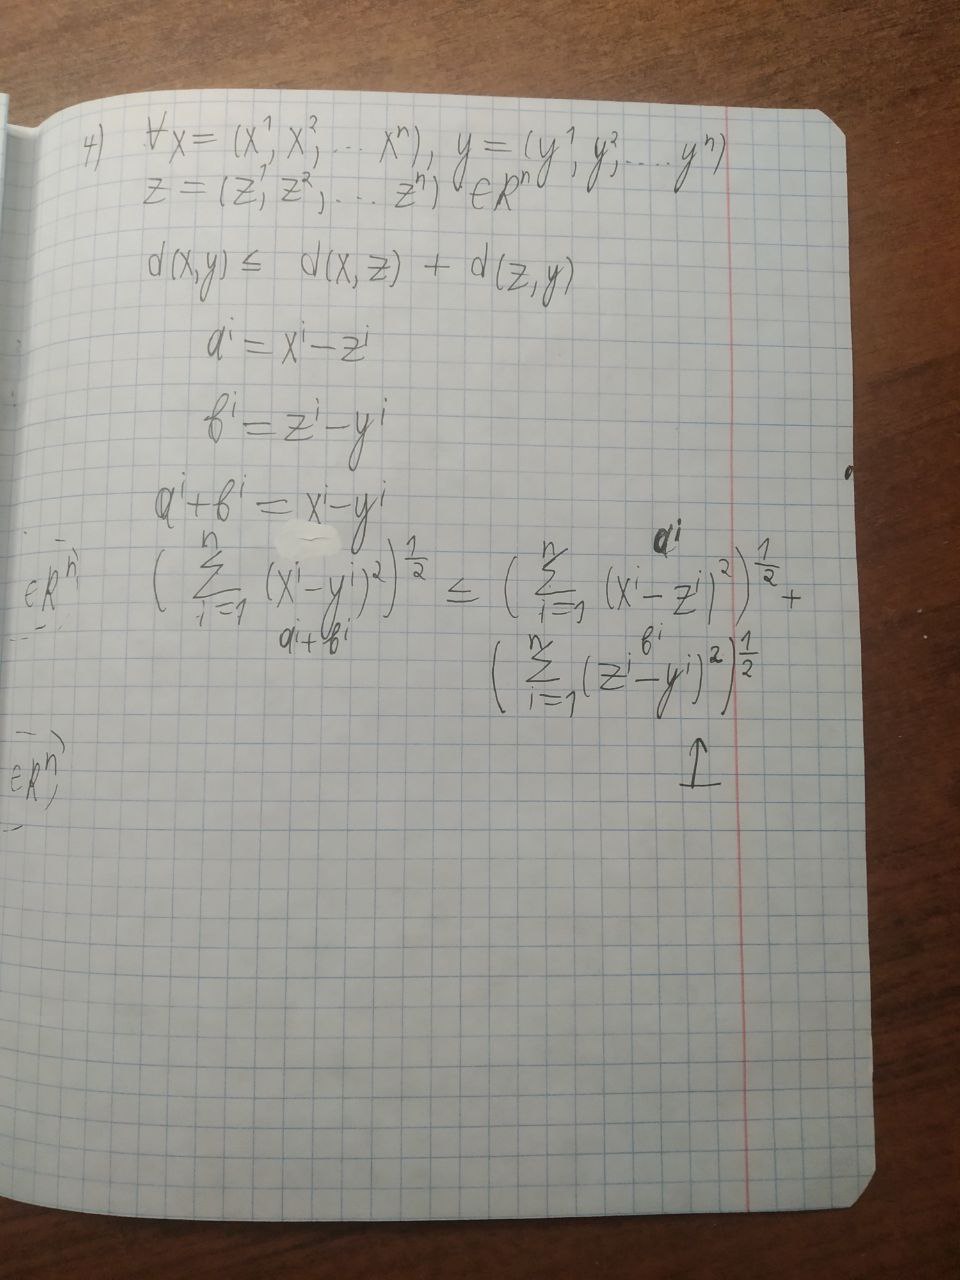 4) ∀x = (x¹, x², ... xⁿ), y = (y¹, y², .... yⁿ)
z = (z¹, z², ... zⁿ) ∈Rⁿ
d(x,y) ≤ d(x,z) + d(z,y)
aⁱ = xⁱ - zⁱ
вⁱ = zⁱ - yⁱ
aⁱ + вⁱ = xⁱ - yⁱ
aⁱ
∈Rⁿ
(∑ⁿᵢ₌₁ (xⁱ - yⁱ)²)^½ ≤ (∑ⁿᵢ₌₁ (xⁱ - zⁱ)²)^½ +
aⁱ + вⁱ
вⁱ
(∑ⁿᵢ₌₁ (zⁱ - yⁱ)²)^½
↥
∈Rⁿ,